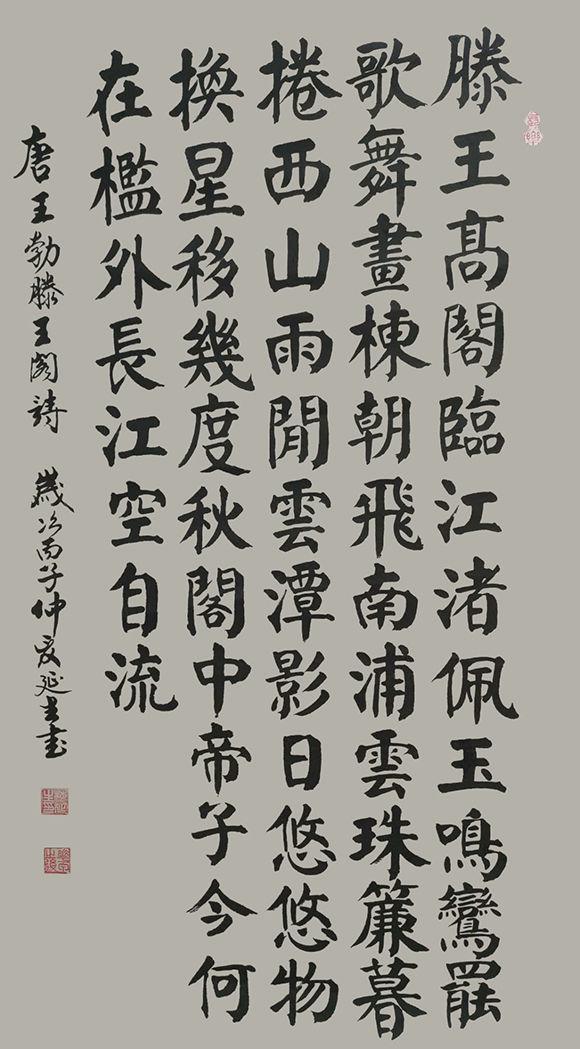 滕王髙閣臨江渚佩玉鳴鸞罷
歌舞畫棟朝飛南浦雲珠簾暮
捲西山雨閒雲潭影日悠悠物
換星移幾度秋閣中帝子今何
在檻外長江空自流
唐王勃滕王閣詩 歲次丙子仲夏延生書